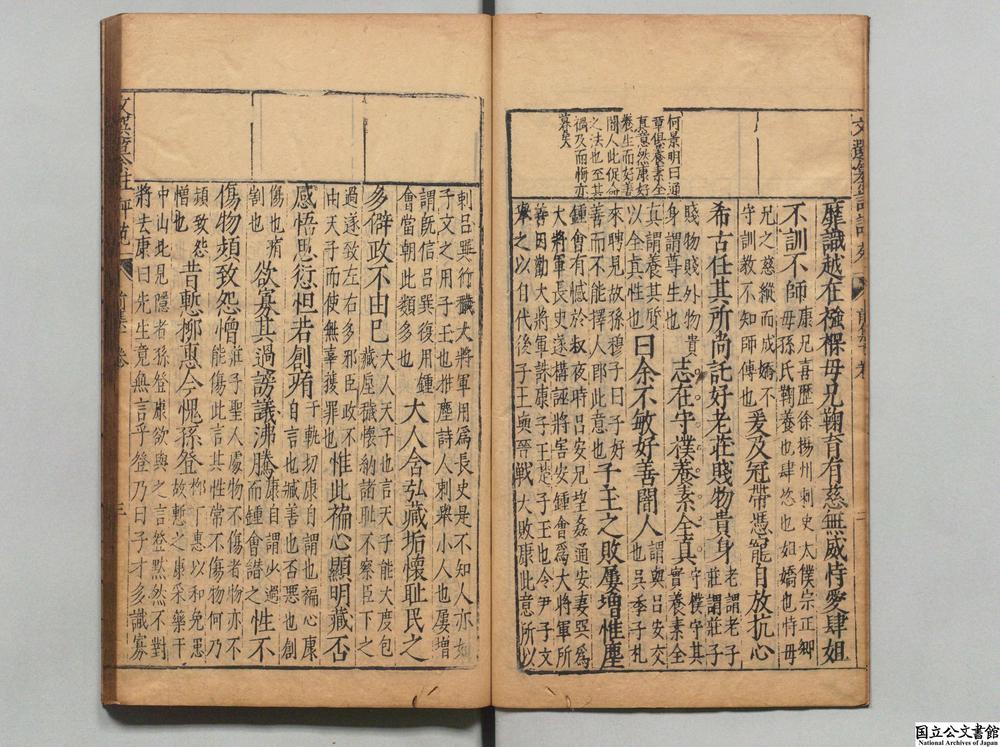 何景明曰通
章俱養素全
真意然康好
養生而好善
闇人此促命
之法也至其
禍及而悔亦
暮矣
靡識越在襁褓母兄鞠育有慈無威恃愛肆姐
不訓不師康兄喜歷徐揚州刺史太僕宗正卿
母孫氏鞠養也肆恣也姐嬌也恃母
兄之慈縱而成嬌不
守訓教不知師傅也爰及冠帶憑寵自放抗心
希古任其所尚託好老莊賤物貴身老謂老子
莊謂莊子
賤物賤外物貴
身謂尊生也志在守樸養素全真守樸守其
實養素全
真謂養其質
以全真性也曰余不敏好善闇人謂與呂安交
也吳季子札
來聘見故孫穆子曰子好
善而不能擇人即此意也子玉之敗屢增惟塵
鍾會有憾於叔夜時呂安兄巽姦通安妻巽爲
大將軍長史遂構誣將害安鍾會爲大將軍所
善因勸大將軍誅康子玉楚子玉也令尹子文
舉之以自代後子玉與晉戰大敗康此意所以
刺呂巽行穢大將軍用爲長史是不知人亦如
子文之用子玉也惟塵詩人刺舉小人也屢增
謂旣信呂巽復用鍾
會當朝此類多也大人含弘藏垢懷耻民之
多僻政不由己大人天子也言天子能大度包
藏垢穢懷納諸耻不察臣下之
過遂致左右多邪臣政不
由天子而使無辜獲罪也惟此褊心顯明臧否
感悟思愆怛若創痏于軌切康自謂也褊心康
自言也臧善也否惡也創
傷也痏
剳也欲寡其過謗議沸騰康自謂此過
而鍾會譖之性不
傷物頻致怨憎莊子聖人處物不傷者物亦不
能傷此言其性常不傷物何乃
頻致怨
憎也昔慙柳惠今愧孫登柳下惠以和免患
故慙之康采藥于
中山北見隱者孫登康欲與之言登默然不對
將去康曰先生竟無言乎登乃曰子才多識寡
三
国立公文書館
National Archives of Japan